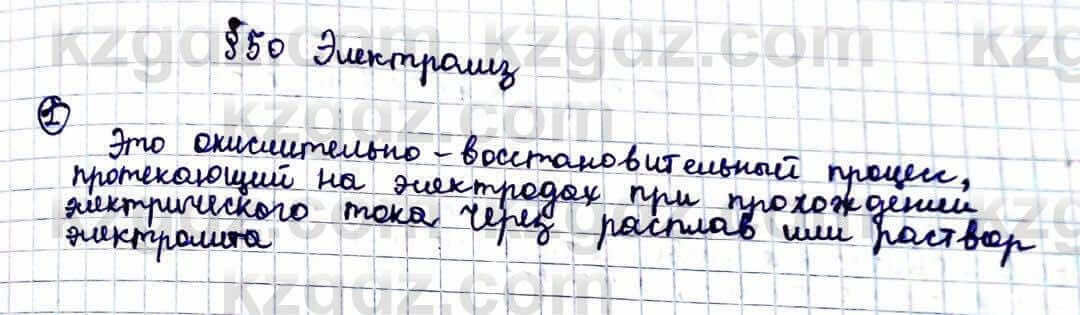 kzgdz.com kzgdz.com
§50 Электролиз
kzgdz.com
1
Это окислительно-восстановительный процесс,
протекающий на электродах при прохождении
kzgdz.com kzgdz.com
электрического тока через расплав или раствор
электролита
kzgdz.com